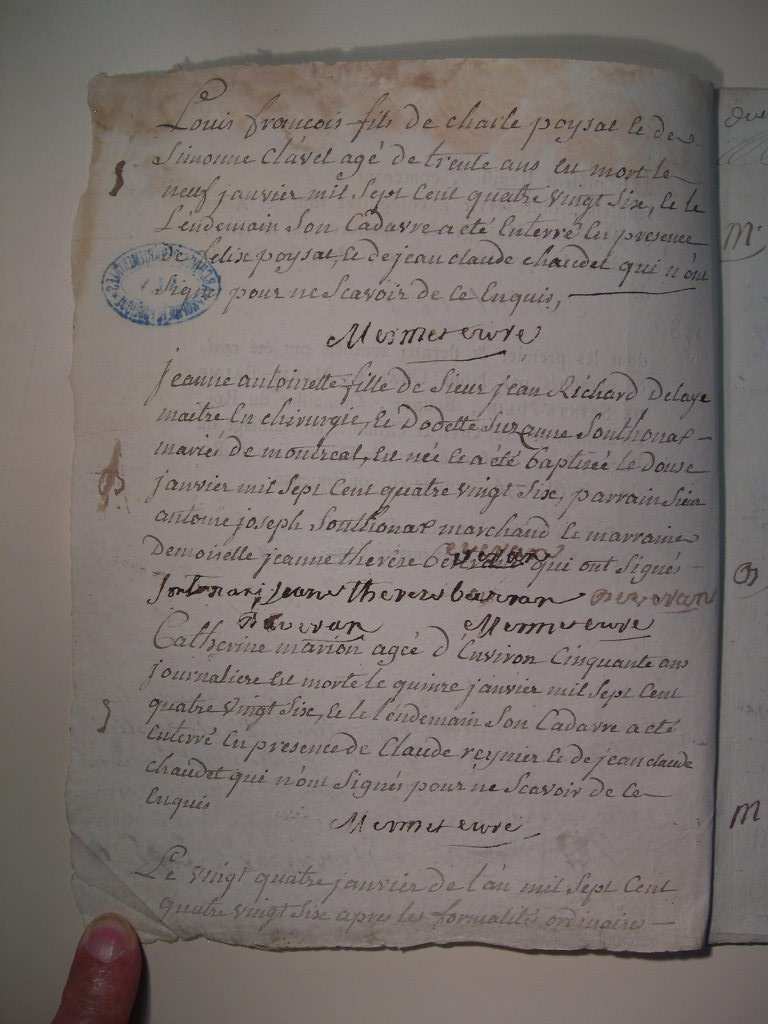 Louis françois fils de charle poysat et de
Simonne Clavel agé de trente ans est mort le
neuf janvier mil Sept Cent quatre vingt Six, et le
Lendemain Son Cadavre a été Enterré En presence
De felix poysat, et de jean claude chaudet qui n'ont
Signé pour ne Scavoir de ce Enquis,
Mermet curé
jeanne antoinette fille de Sieur jean Richard Delaye
maitre En chirurgie, et Dodette Suzanne Sonthonax
mariés de montreal, est née et a été baptisée le Douse
janvier mil Sept Cent quatre vingt Six, parrain Sieur
antoine joseph Sonthonax marchand et marraine
Demoiselle jeanne therèse qui ont Signés
Sontonax, jeanne therese
Mermet curé
Catherine marion agée d'Environ Cinquante ans
journaliere est morte le quinze janvier mil Sept Cent
quatre vingt Six, et le Lendemain Son Cadavre a été
Enterré En presence de Claude reynier et de jean claude
chaudet qui n'ont Signés pour ne Scavoir de ce
Enquis
Mermet curé
Le vingt quatre janvier de l'an mil Sept Cent
quatre vingt Six apres les formalités ordinaire